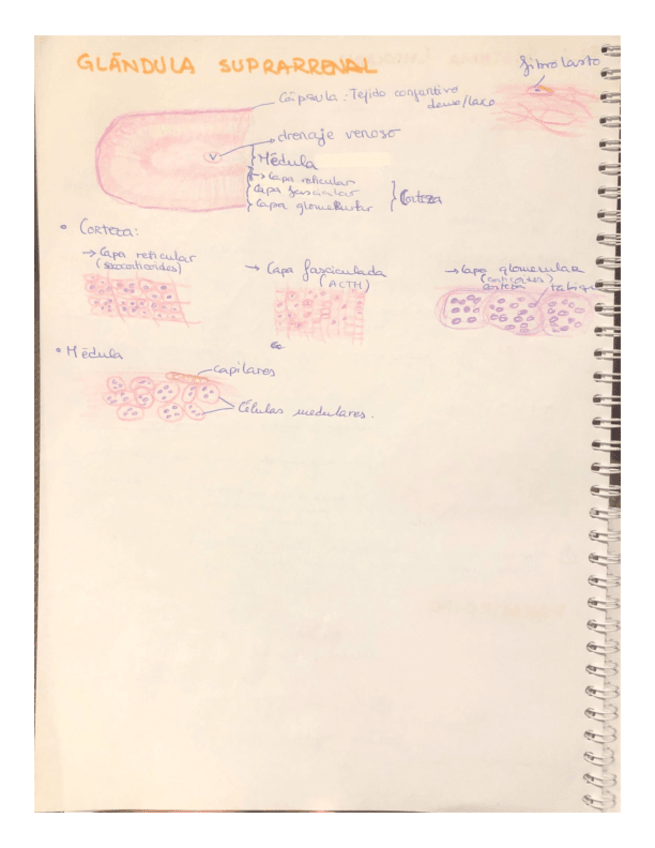 GLÁNDULA SUPRARRENAL
fibroblasto
Cápsula: Tejido conjuntivo
denso/laxo
drenaje venoso
V
Médula
→ Capa reticular
Capa fascicular
Capa glomerular
Corteza
• CORTEZA:
→ Capa reticular
→ Capa fasciculada
(ACTH)
→ Capa glomerular
• Médula
Capilares
Células medulares.